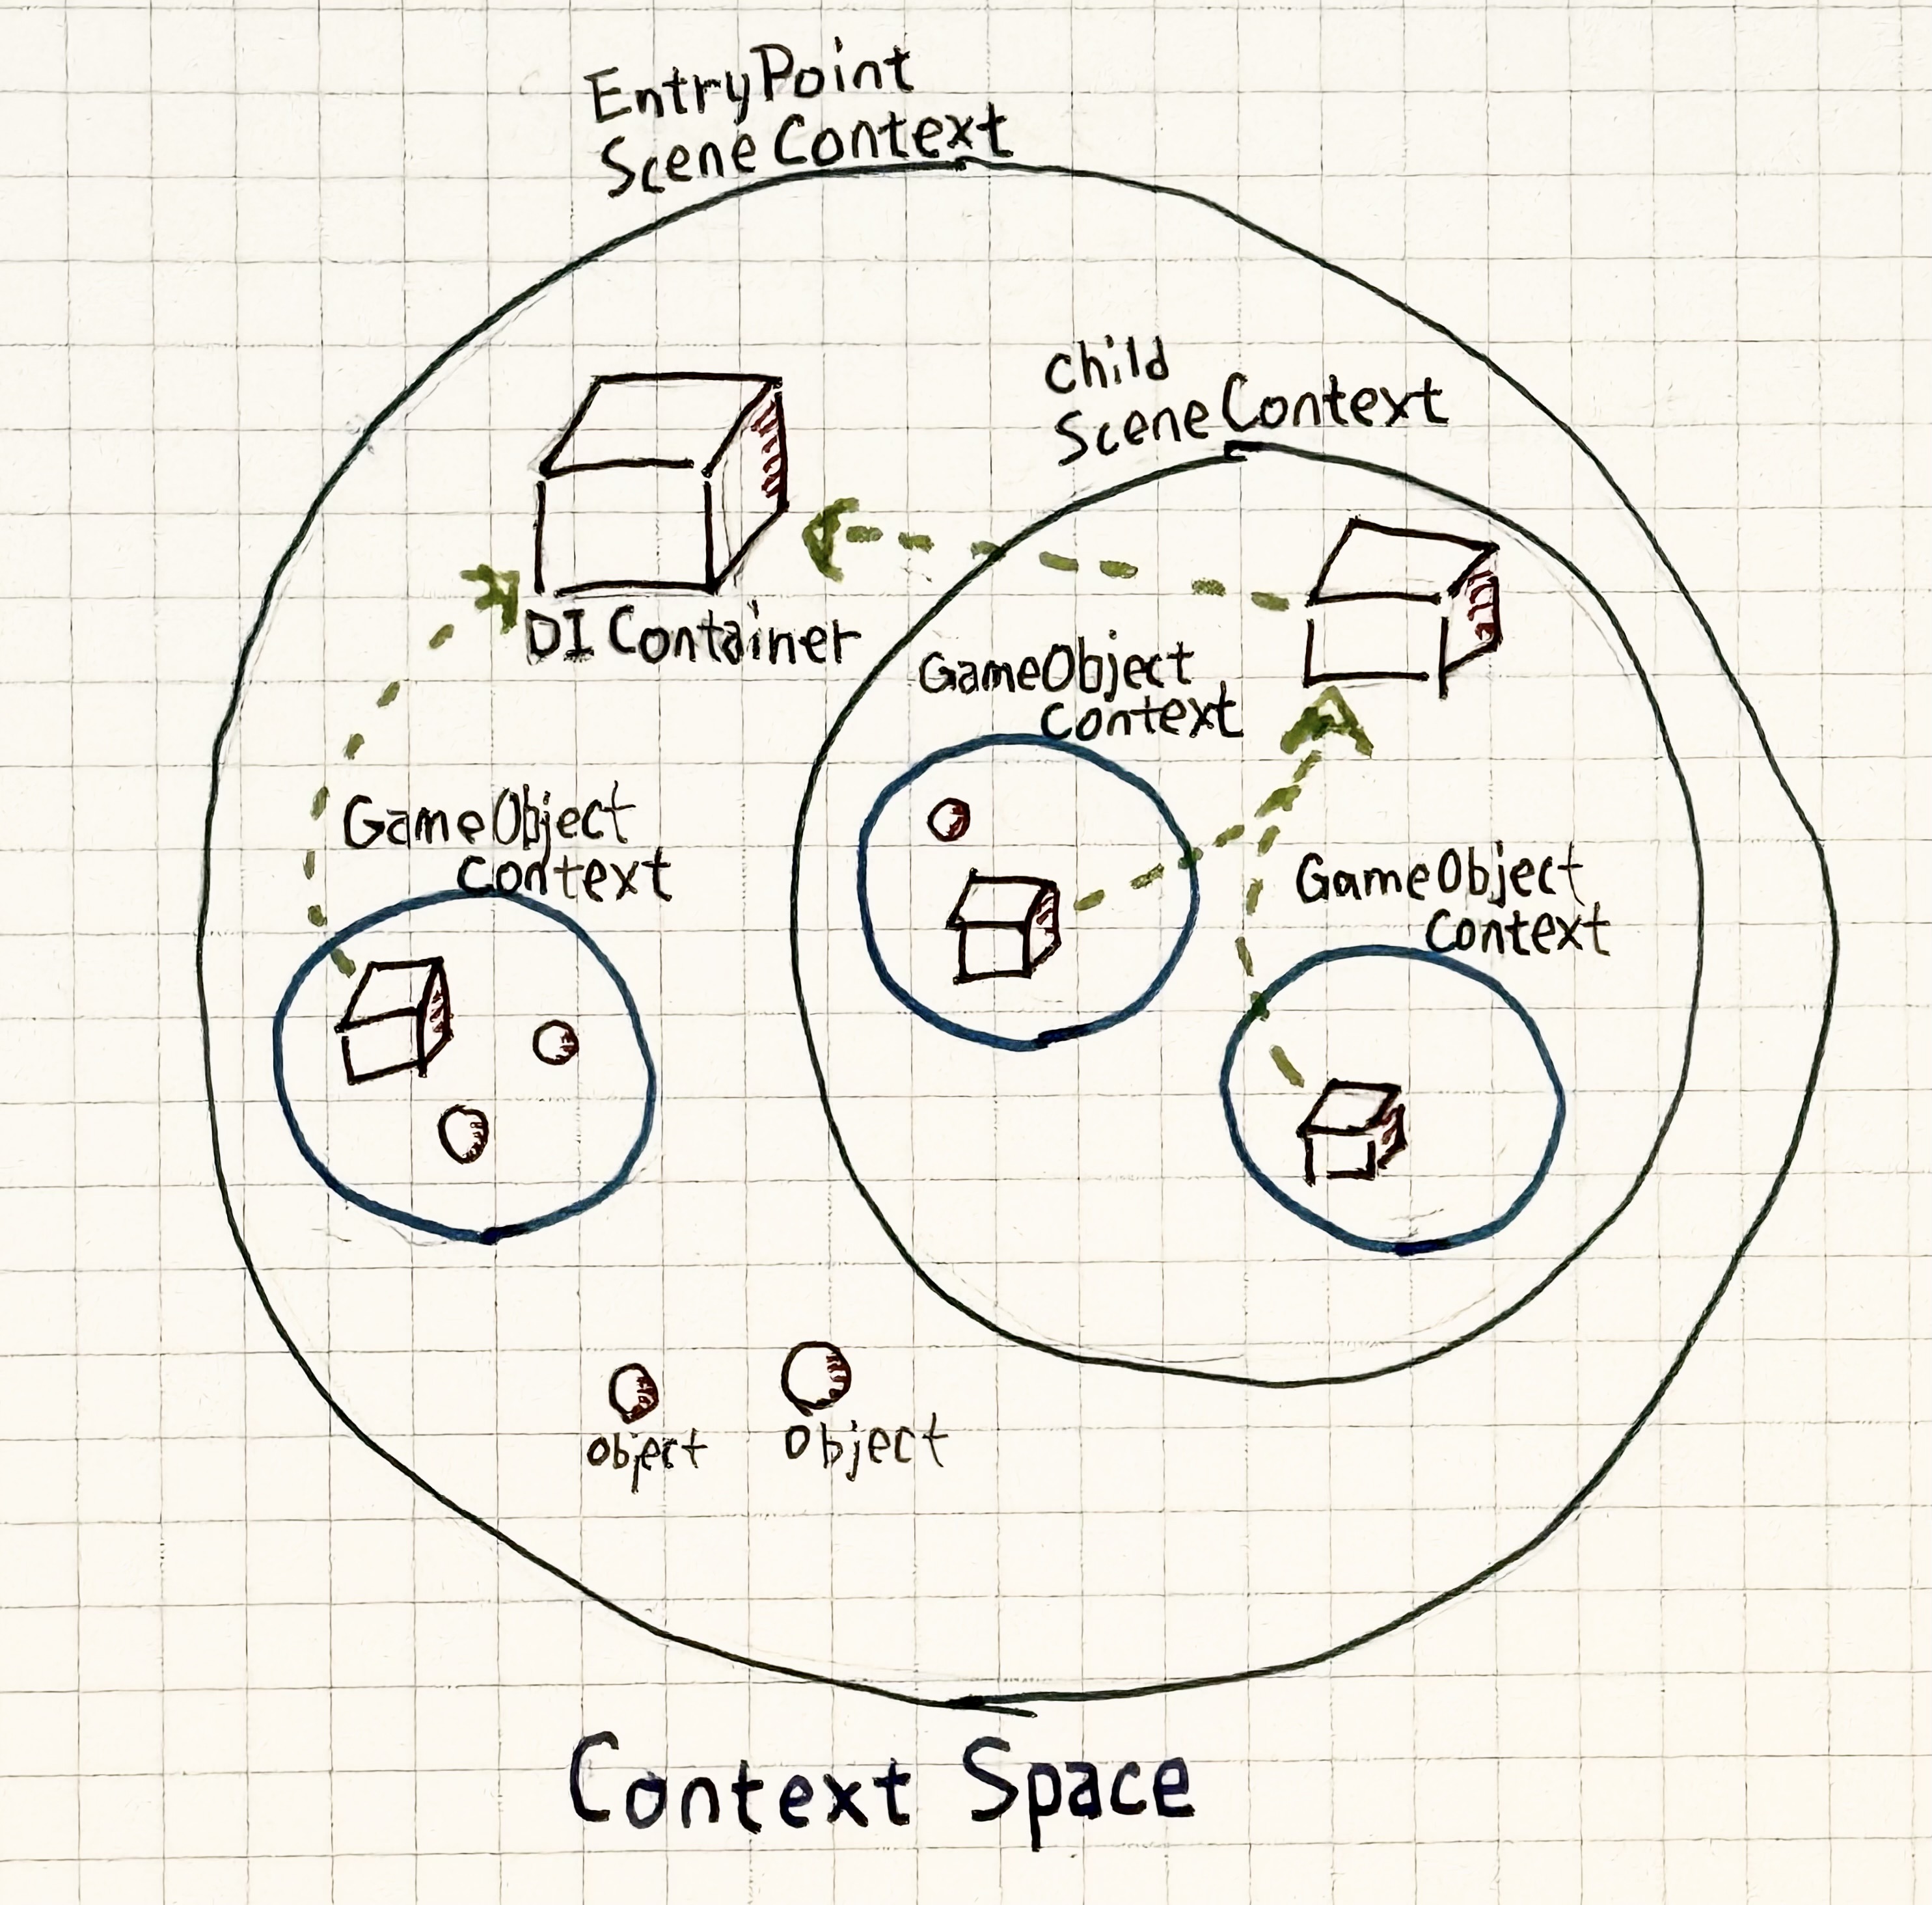 EntryPoint
SceneContext
Child
SceneContext
DI Container
GameObject
Context
GameObject
Context
GameObject
Context
Object
Object
Context Space